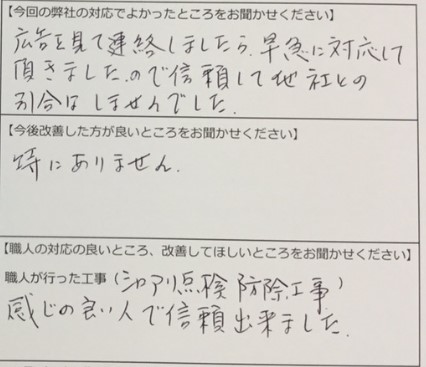 【今回の弊社の対応でよかったところをお聞かせください】
広告を見て連絡しましたら、早急に対応して
頂きました。ので信頼して地社との
引合はしませんでした。
【今後改善した方が良いところをお聞かせください】
特にありません。
【職人の対応の良いところ、改善してほしいところをお聞かせください】
職人が行った工事（シロアリ点検 防除工事）
感じの良い人で信頼出来ました。